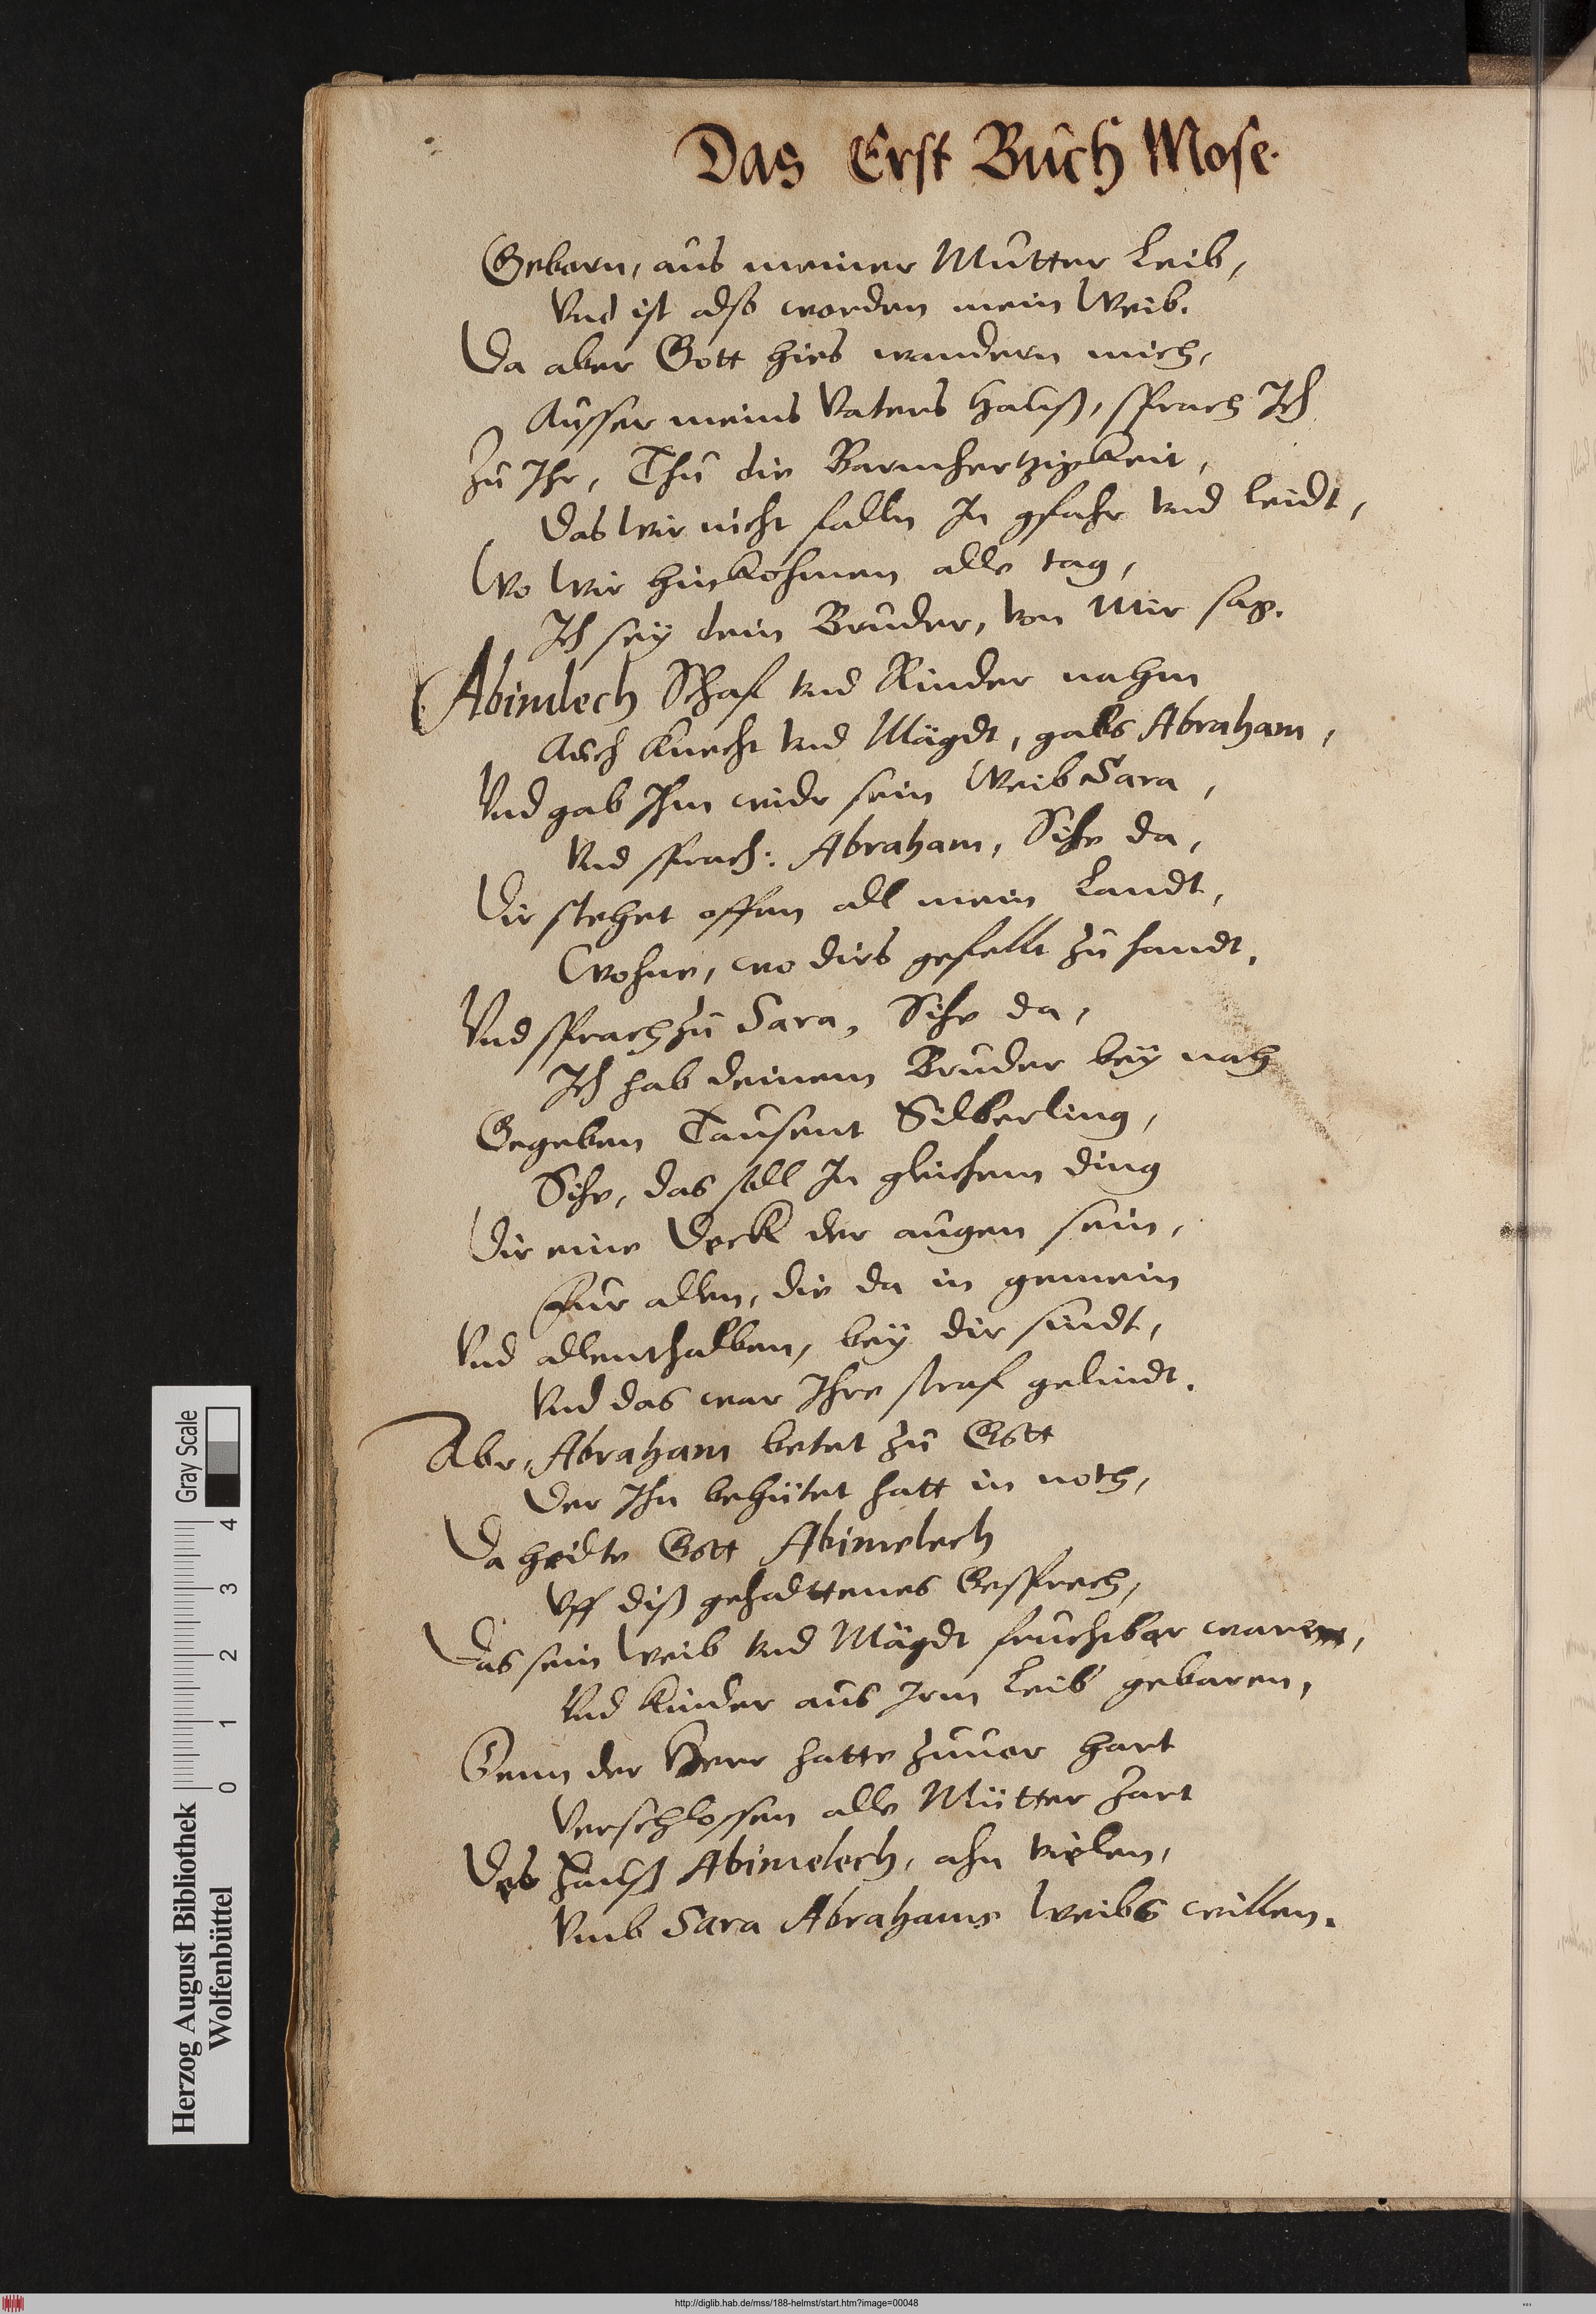 Das Erst Buch Mose.
Geborn, aus meiner Mutter Leib,
Vnd ist also worden mein Weib.
Da aber Gott hies wandern mich,
Ausser meins Vaters Hauß, sprach Ich
Zu Ihr, Thu die Barmhertzigkeit,
Das wir nicht falln In gfahr vnd leidt,
Wo wir hinkohmen alle tag,
Ich sey dein Bruder, von Mir sag.
Abimlech Schaf vnd Rinder nahm
Auch Knecht vnd Mägdt, gabs Abraham,
Vnd gab Ihm widr sein Weib Sara,
Vnd sprach: Abraham, Sihe da,
Dir stehet offen all mein Landt,
Wohne, wo dirs gefellt zu handt.
Vnd sprach zu Sara, Sihe da,
Ich hab deinem Bruder bey nah
Gegeben Tausent Silberling,
Sihe, das soll In gleichem ding
Dir eine Deck der augen sein,
Fur allen, die da in gemein
Vnd allenthalben, bey dir sindt,
Vnd das war Ihre straf gelindt.
Abr, Abraham betet zu Gott
Der Ihn behütet hatt in noth,
Da heilte Gott Abimelech
Vff diß gehalttenes Gesprech,
Das sein Weib vnd Mägdt fruchtbar waren,
Vnd Kinder aus Irm Leib gebaren,
Denn der Herr hatte zuuor hart
Verschlossen alle Mütter zart
Des Hauß Abimelech, ohn vielen,
Vmb Sara Abrahams Weibs willen.
Herzog August Bibliothek
Wolfenbüttel
Gray Scale
0 1 2 3 4
http://diglib.hab.de/mss/188-helmst/start.htm?image=00048